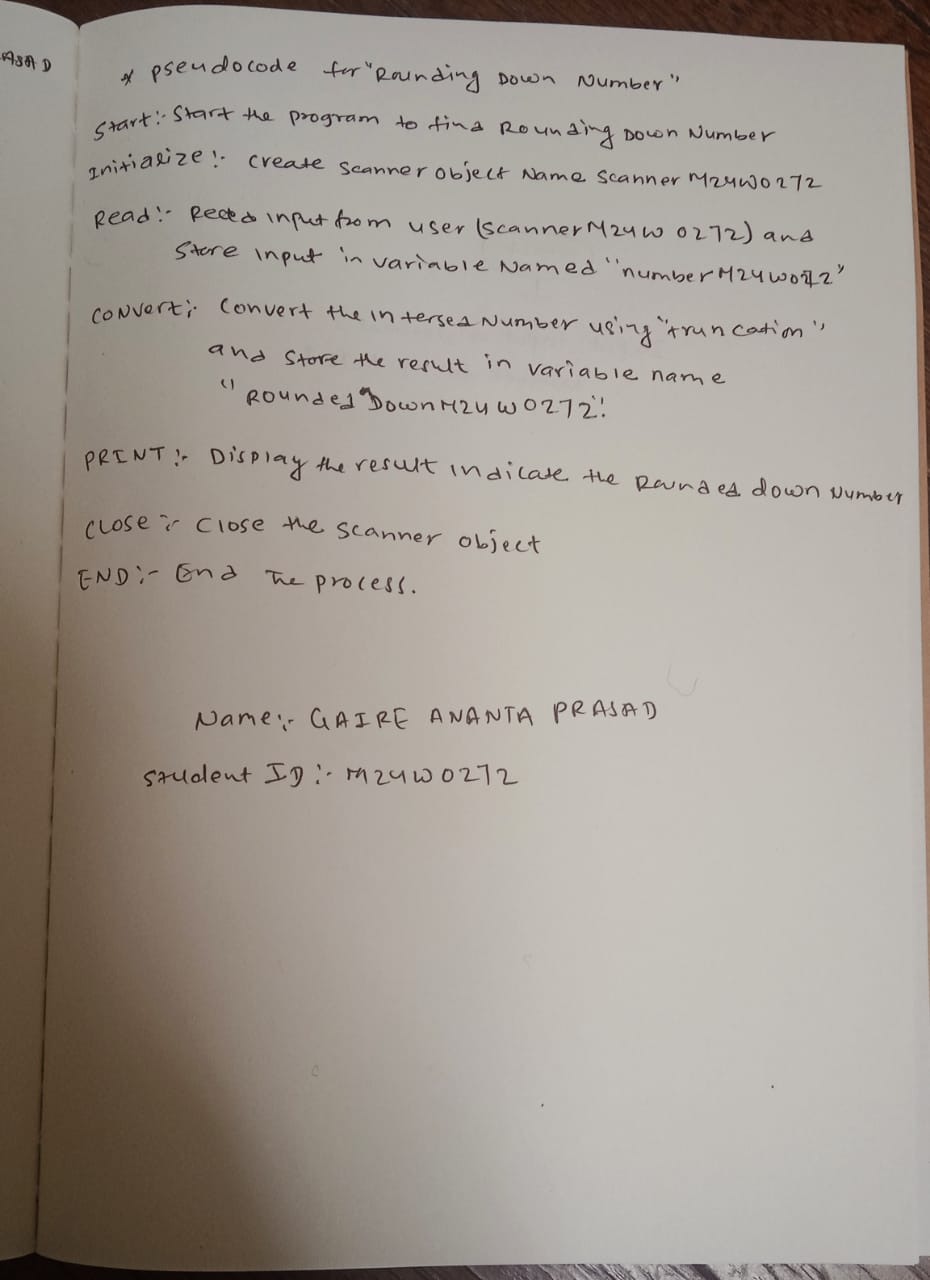 ASAD
* Pseudocode for "Rounding Down Number"
Start:- Start the program to find Rounding Down Number
Initialize:- Create Scanner object Name Scanner M24W0272
Read:- Read input from user (scanner M24W0272) and
Store input in variable Named "number M24W0272"
CONVert:- Convert the Intersed Number using "truncation"
and Store the result in variable name
"Rounded Down M24W0272".
PRINT:- Display the result indicate the Rounded down Number
CLOSE:- Close the scanner object
END:- End The process.
Name:- GAIRE ANANTA PRASAD
Student ID:- M24W0272